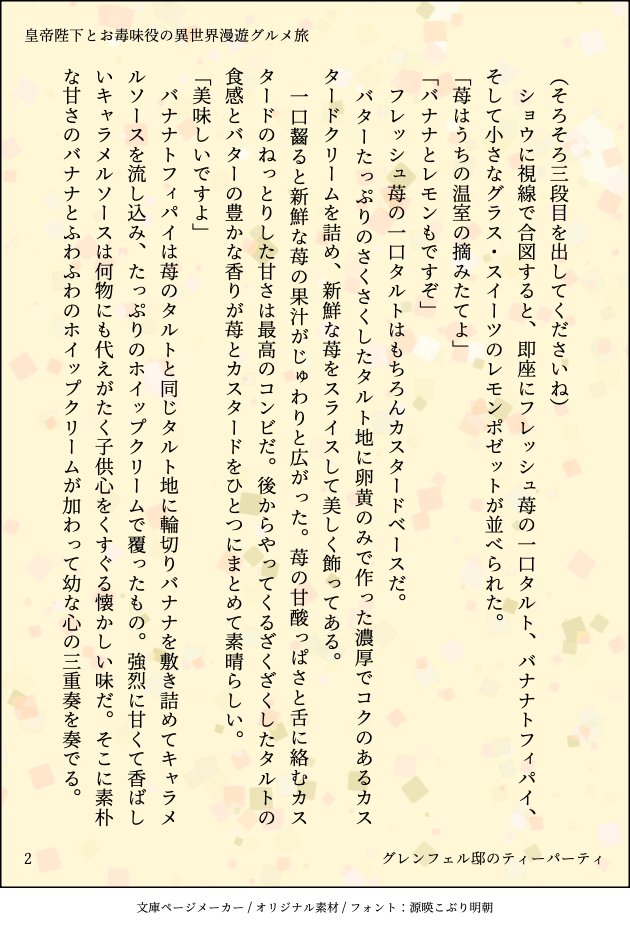 皇帝陛下とお毒味役の異世界漫遊グルメ旅
（そろそろ三段目を出してくださいね）
　ショウに視線で合図すると、即座にフレッシュ苺の一口タルト、バナナトフィパイ、
そして小さなグラス・スイーツのレモンポゼットが並べられた。
「苺はうちの温室の摘みたてよ」
「バナナとレモンもですぞ」
　フレッシュ苺の一口タルトはもちろんカスタードベースだ。
　バターたっぷりのさくさくしたタルト地に卵黄のみで作った濃厚でコクのあるカス
タードクリームを詰め、新鮮な苺をスライスして美しく飾ってある。
　一口齧ると新鮮な苺の果汁がじゅわりと広がった。苺の甘酸っぱさと舌に絡むカス
タードのねっとりした甘さは最高のコンビだ。後からやってくるざくざくしたタルトの
食感とバターの豊かな香りが苺とカスタードをひとつにまとめて素晴らしい。
「美味しいですよ」
　バナナトフィパイは苺のタルトと同じタルト地に輪切りバナナを敷き詰めてキャラメ
ルソースを流し込み、たっぷりのホイップクリームで覆ったもの。強烈に甘くて香ばし
いキャラメルソースは何物にも代えがたく子供心をくすぐる懐かしい味だ。そこに素朴
な甘さのバナナとふわふわのホイップクリームが加わって幼な心の三重奏を奏でる。
2
グレンフェル邸のティーパーティ
文庫ページメーカー / オリジナル素材 / フォント：源暎こぶり明朝